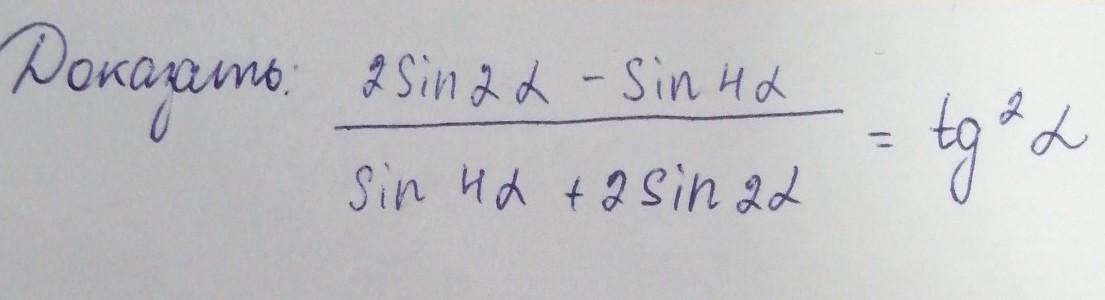 Доказать: 2Sin2α - Sin4α
Sin 4α + 2Sin 2α = tg²α